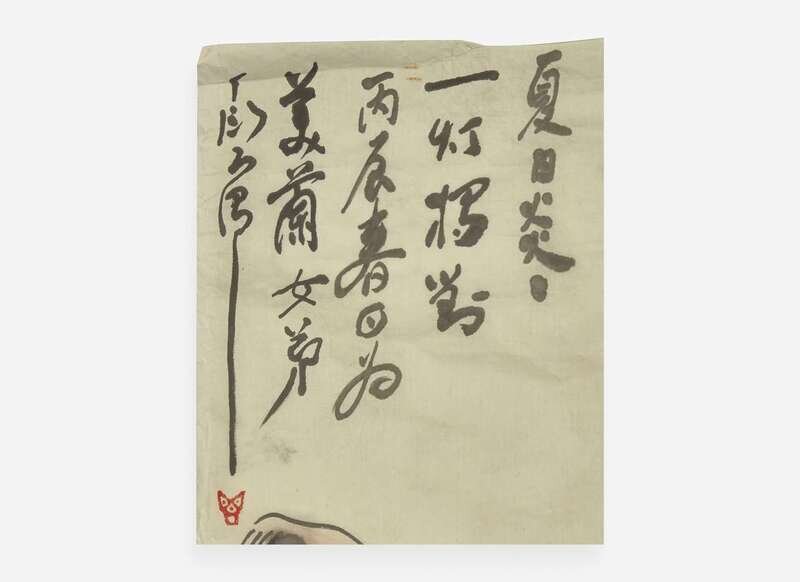 夏日炎〻
一灯獨對
丙辰春日为
美蘭女弟
丁衍庸